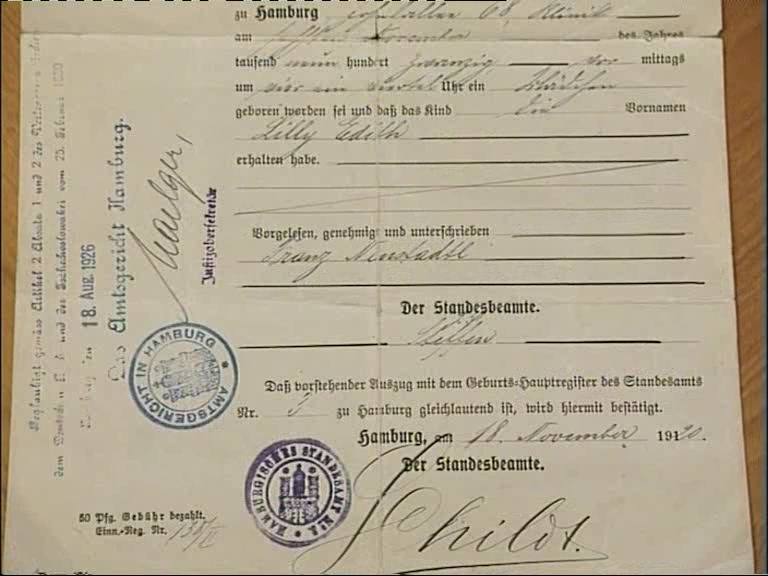 zu Hamburg Klinik
am November des Jahres
tausend neun hundert zwanzig vor mittags
um vier ein viertel Uhr ein Mädchen
geboren worden sei und daß das Kind die Vornamen
Lilly Edith
erhalten habe.
Vorgelesen, genehmigt und unterschrieben
Franz Neustadtl
Der Standesbeamte.
Daß vorstehender Auszug mit dem Geburts-Hauptregister des Standesamts
Nr. 3 zu Hamburg gleichlautend ist, wird hiermit bestätigt.
Hamburg, am 18. November 1920.
Der Standesbeamte.
Beglaubigt gemäss Artikel 2 Absatz 1 und 2 des
und der Tschechoslowakei vom 25. Februar
18. Aug. 1926
Das Amtsgericht Hamburg.
Justizobersekretär
AMTSGERICHT IN HAMBURG
HAMBURGISCHES STANDESAMT
50 Pfg. Gebühr bezahlt.
Einn.-Reg. Nr.